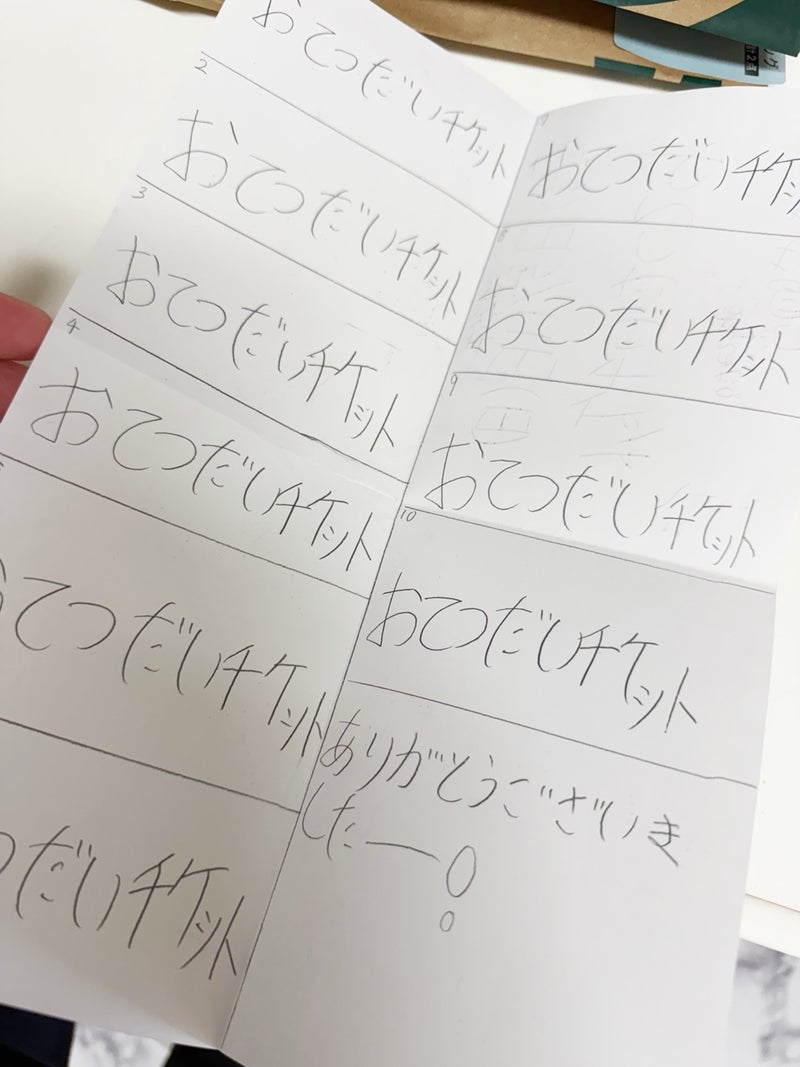 おてつだいチケット
2
おてつだいチケット
3
おてつだいチケット
4
おてつだいチケット
てつだいチケット
だいチケット
7
おてつだいチケッ
8
おてつだいチケット
9
おてつだいチケット
10
おてつだいチケット
ありがとうございま
したー!